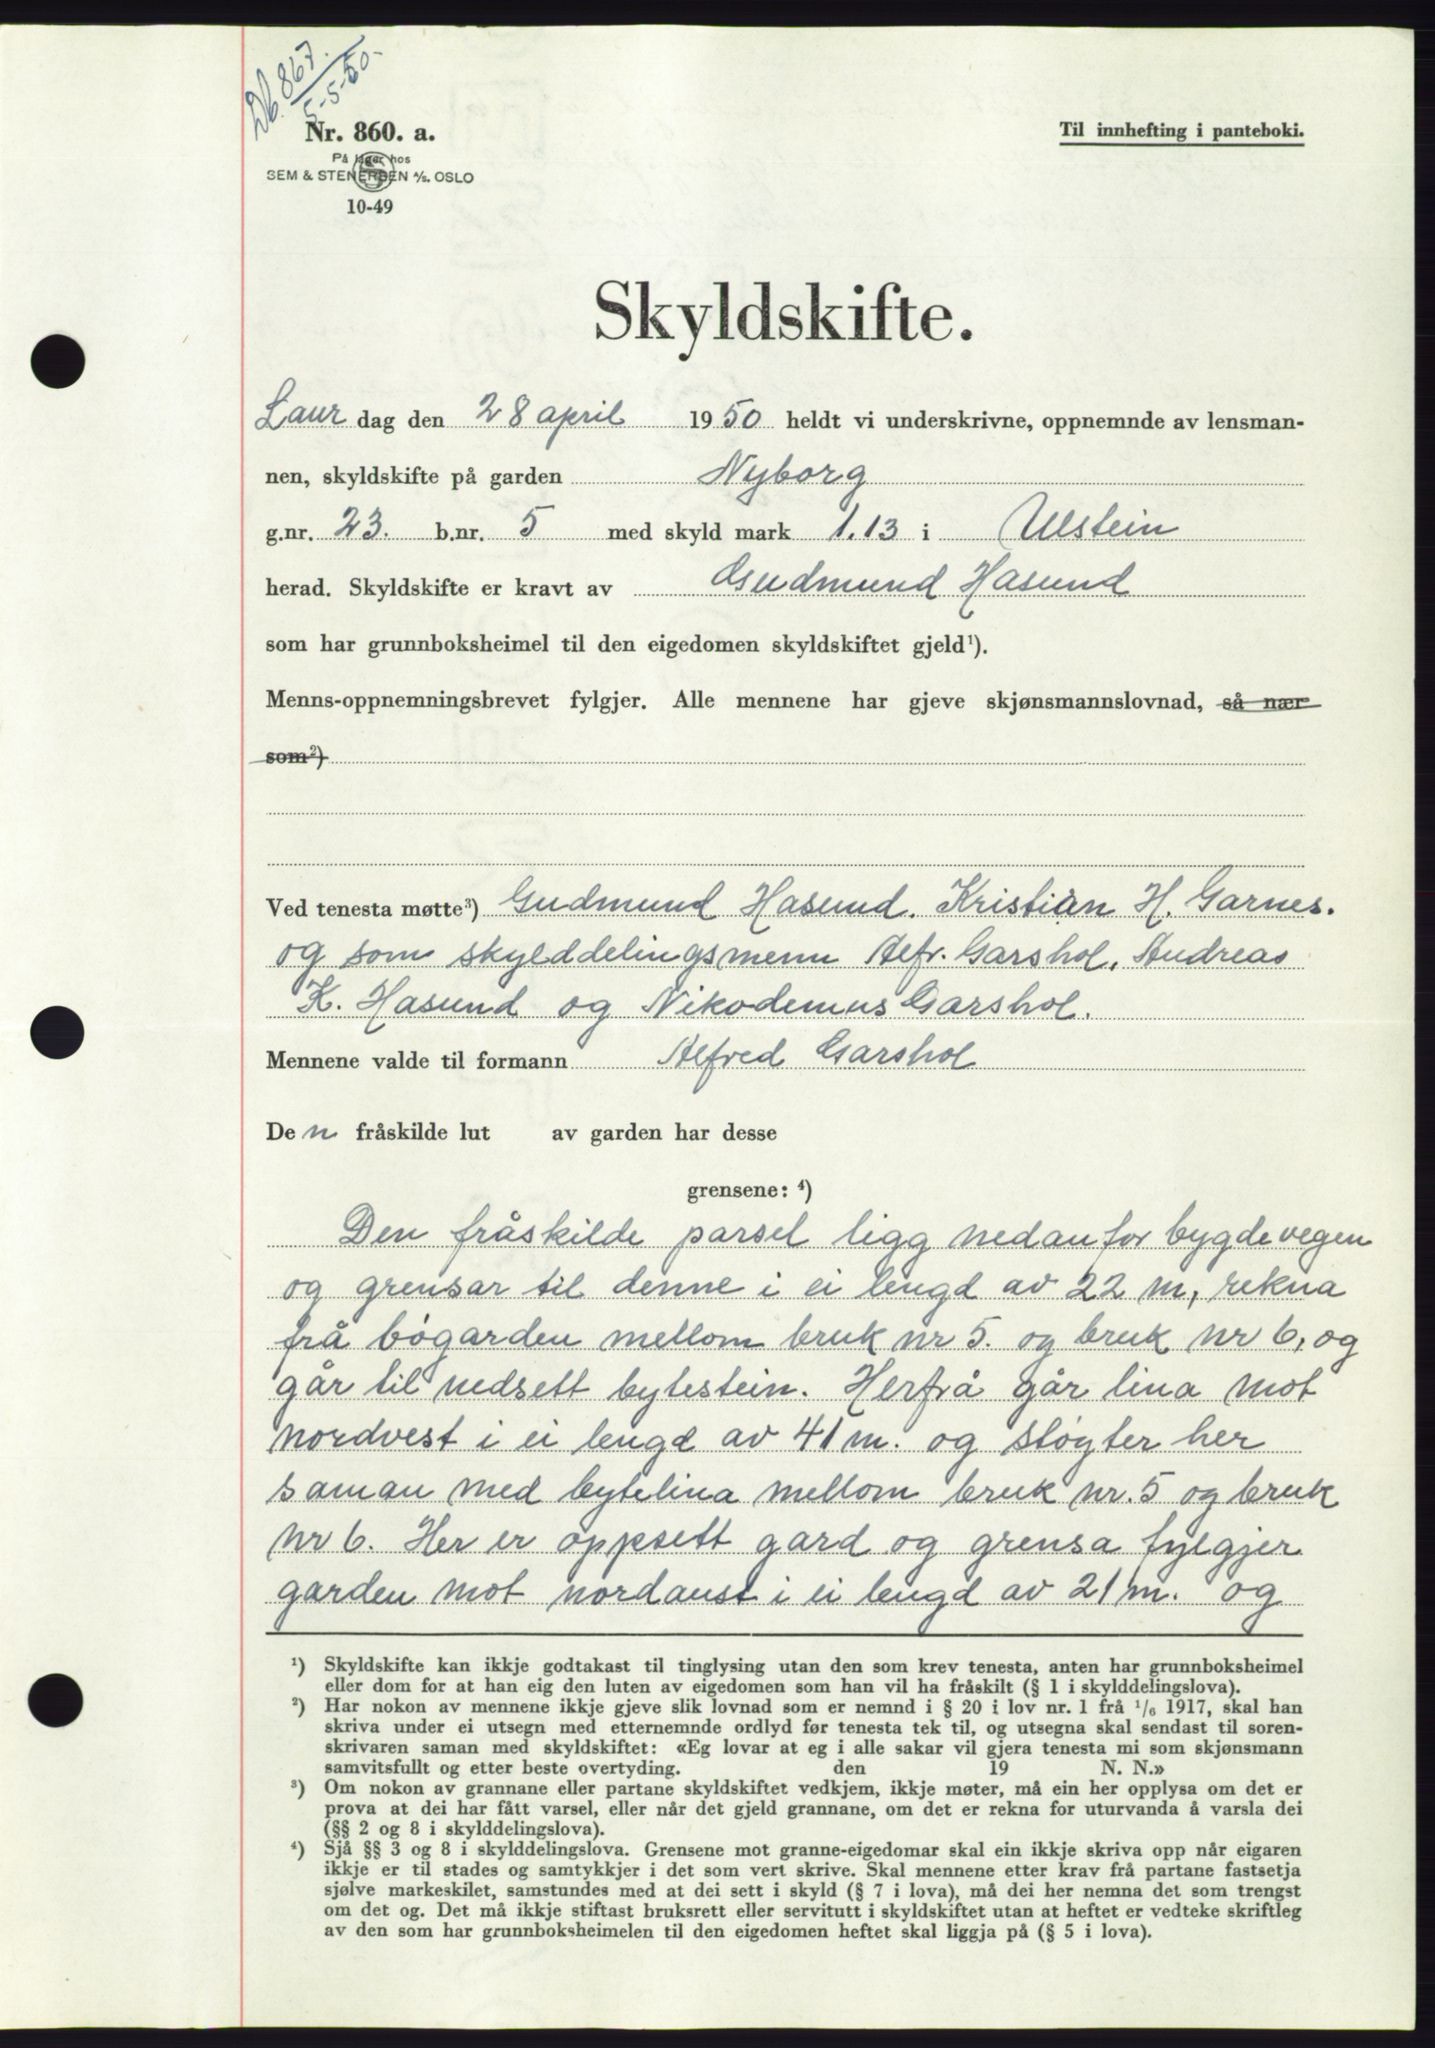 Db. 867.
5-5-50-
Nr. 860. a.
Til innhefting i panteboki.
På lager hos
SEM & STENERSEN A/S. OSLO
10-49
Skyldskifte.
Laur dag den 28 april 1950 heldt vi underskrivne, oppnemnde av lensman-
nen, skyldskifte på garden Nyborg
g.nr. 23. b.nr. 5 med skyld mark 1.13 i Ulstein
herad. Skyldskifte er kravt av Gudmund Hasund
som har grunnboksheimel til den eigedomen skyldskiftet gjeld¹).
Menns-oppnemningsbrevet fylgjer. Alle mennene har gjeve skjønsmannslovnad, så nær
som²)
Ved tenesta møtte³) Gudmund Hasund. Kristian H. Garnes.
og som skylddelingsmenn Alfr. Garshol, Andreas
K. Hasund og Nikodemus Garshol.
Mennene valde til formann Alfred Garshol
Den fråskilde lut av garden har desse
grensene: ⁴)
Den fråskilde parsel ligg nedanfor bygdevegen
og grensar til denne i ei lengd av 22 m, rekna
frå bøgarden mellom bruk nr 5. og bruk nr 6, og
går til nedsett bytestein. Herfrå går lina mot
nordvest i ei lengd av 41 m. og støyter her
saman med bytelina mellom bruk nr. 5 og bruk
nr 6. Her er oppsett gard og grensa fylgjer
garden mot nordaust i ei lengd av 21 m. og
¹) Skyldskifte kan ikkje godtakast til tinglysing utan den som krev tenesta, anten har grunnboksheimel
eller dom for at han eig den luten av eigedomen som han vil ha fråskilt (§ 1 i skylddelingslova).
²) Har nokon av mennene ikkje gjeve slik lovnad som er nemnd i § 20 i lov nr. 1 frå ¹/₆ 1917, skal han
skriva under ei utsegn med etternemnde ordlyd før tenesta tek til, og utsegna skal sendast til soren-
skrivaren saman med skyldskiftet: «Eg lovar at eg i alle sakar vil gjera tenesta mi som skjønsmann
samvitsfullt og etter beste overtyding. den 19 N. N.»
³) Om nokon av grannane eller partane skyldskiftet vedkjem, ikkje møter, må ein her opplysa om det er
prova at dei har fått varsel, eller når det gjeld grannane, om det er rekna for uturvanda å varsla dei
(§§ 2 og 8 i skylddelingslova).
⁴) Sjå §§ 3 og 8 i skylddelingslova. Grensene mot granne-eigedomar skal ein ikkje skriva opp når eigaren
ikkje er til stades og samtykkjer i det som vert skrive. Skal mennene etter krav frå partane fastsetja
sjølve markeskilet, samstundes med at dei sett i skyld (§ 7 i lova), må dei her nemna det som trengst
om det og. Det må ikkje stiftast bruksrett eller servitutt i skyldskiftet utan at heftet er vedteke skriftleg
av den som har grunnboksheimelen til den eigedomen heftet skal liggja på (§ 5 i lova).